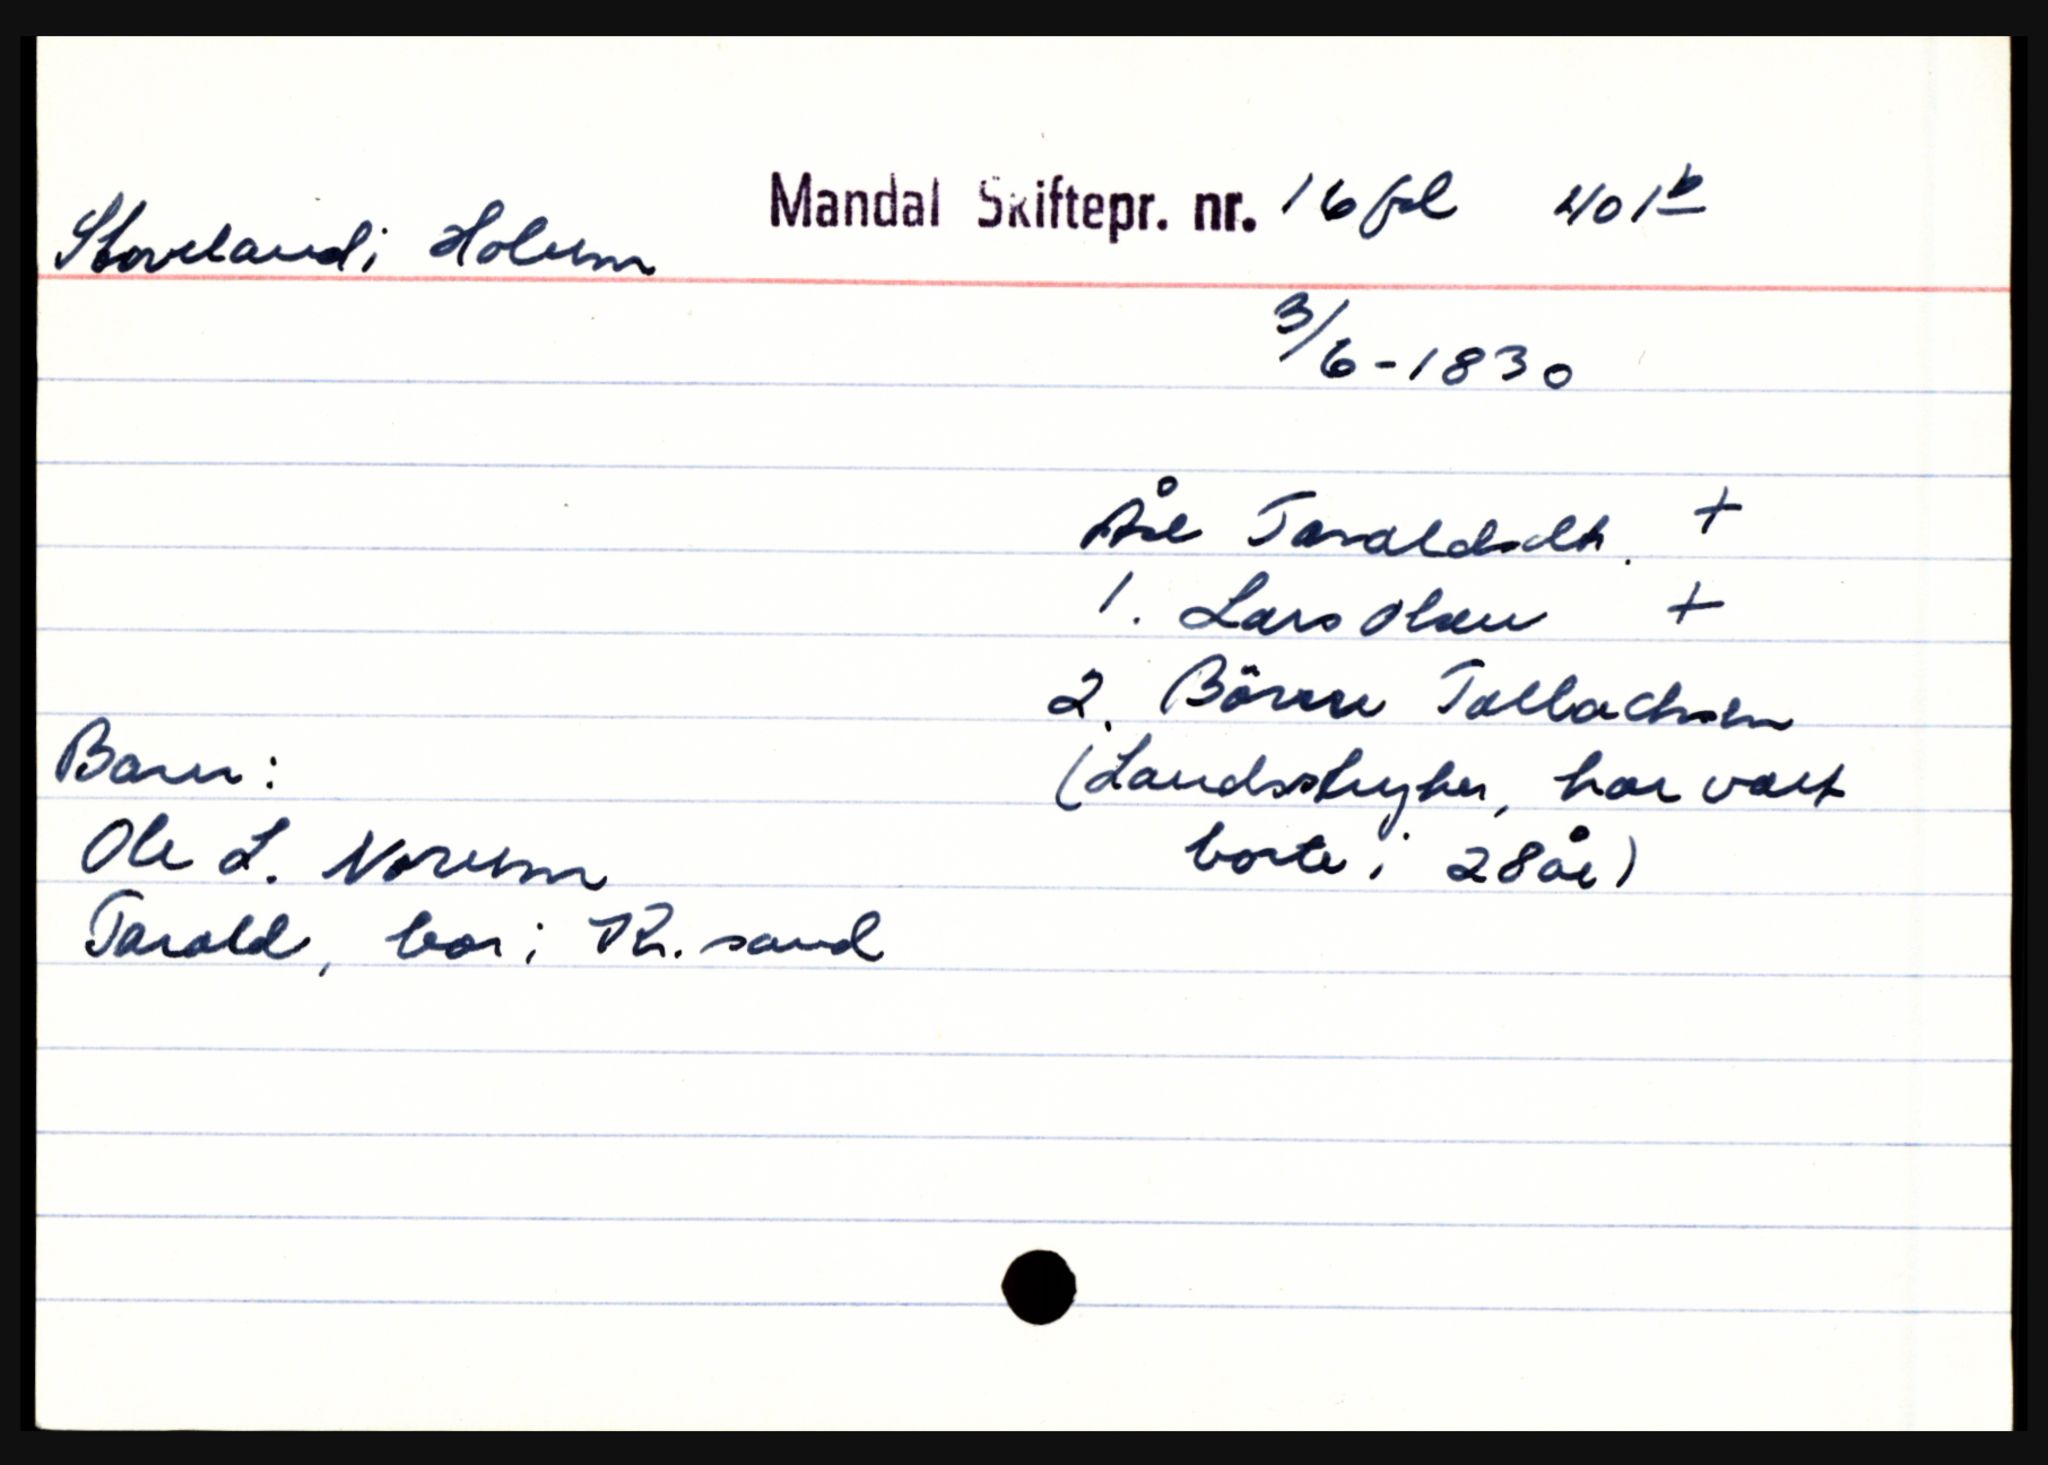 Mandal Skiftepr. nr. 16 fol 401b
Stoveland i Holum
3/6-1830
Åse Taraldsdtr. +
1. Lars Olsen +
2. Börre Tallachsen
(Landsstryker, har vært
borte i 28 år)
Barn:
Ole L. Norum
Tarald, bor i Kr. sand